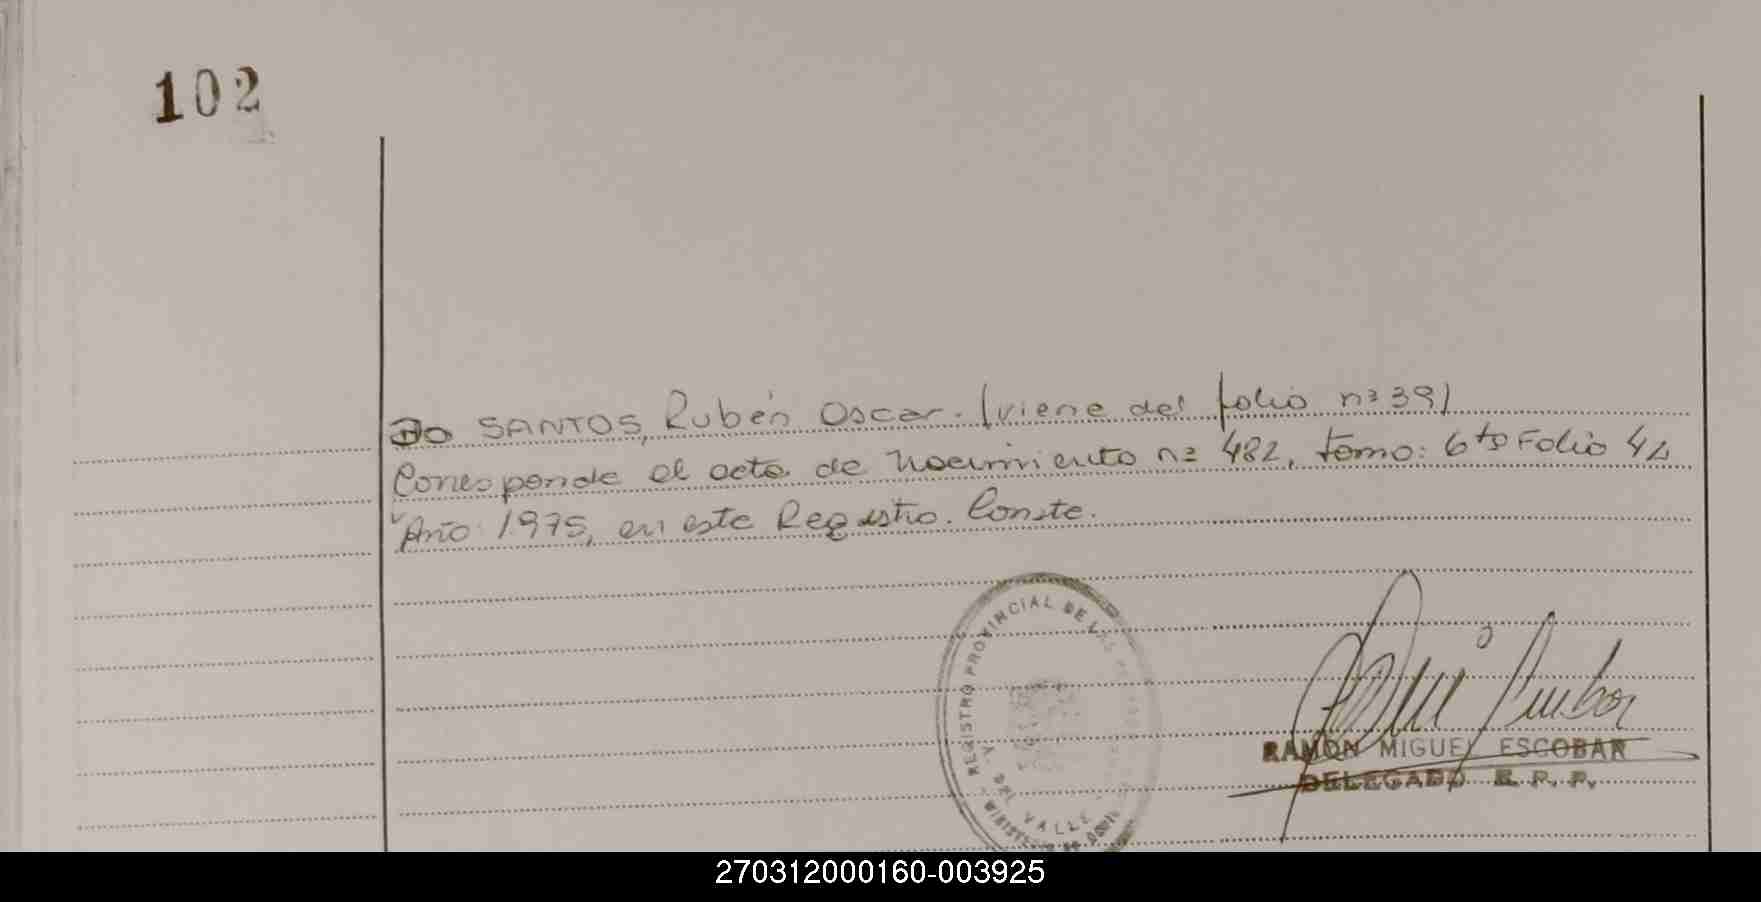 102
DO SANTOS, Rubén Oscar. (viene del folio nº 391
Corresponde el acta de Nacimiento nº 482, tomo: 6to Folio 42
Año: 1975, en este Registro. Conste.
REGISTRO PROVINCIAL DE LAS
DEL VALLE
RAMON MIGUEL ESCOBAR
DELEGADO R. P. P.
270312000160-003925